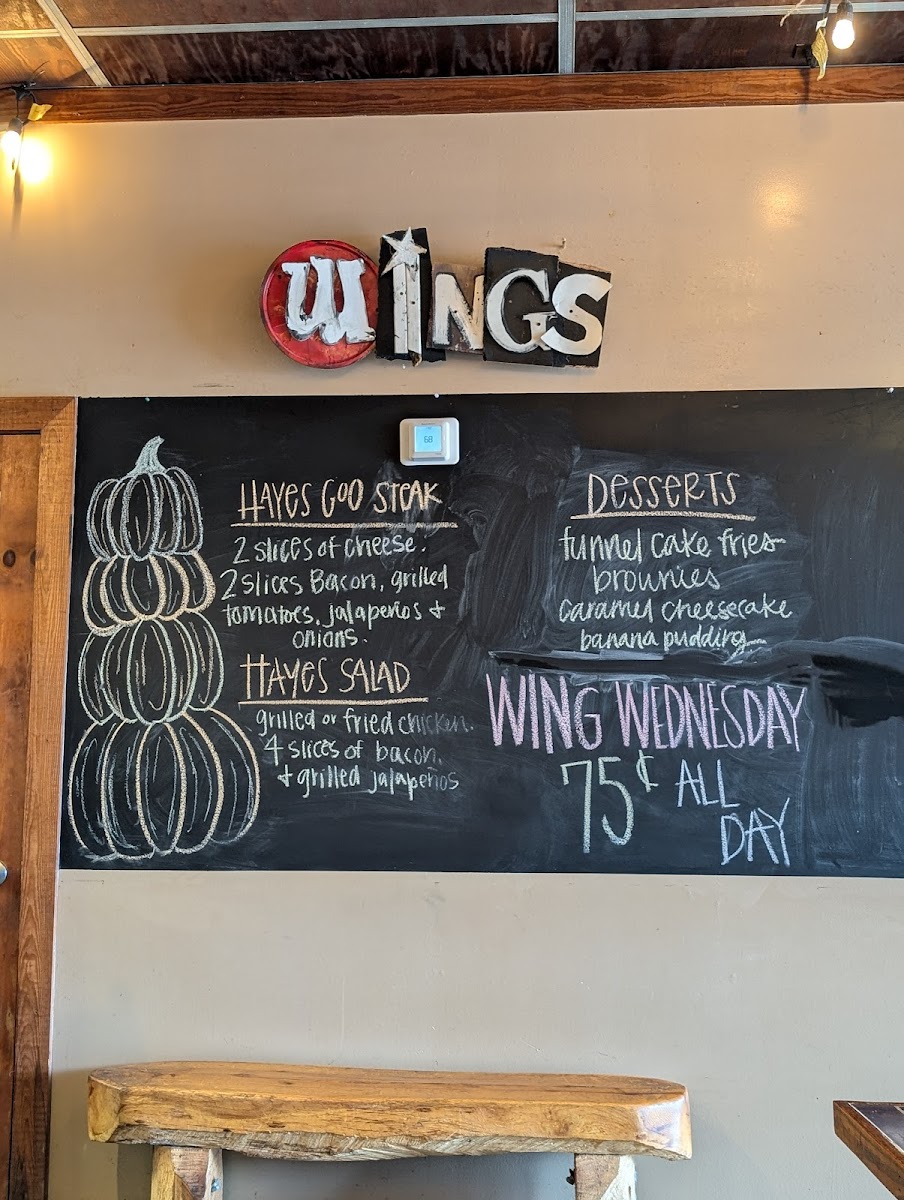 WINGS
68
HAYES GOO STEAK
2 slices of cheese.
2 slices Bacon, grilled
tomatoes, jalapeños +
onions.
HAYES SALAD
grilled or fried chicken.
4 slices of bacon.
+ grilled jalapeños
DESSERTS
funnel cake fries
brownies
caramel cheesecake
banana pudding
WING WEDNESDAY
75¢ ALL
DAY